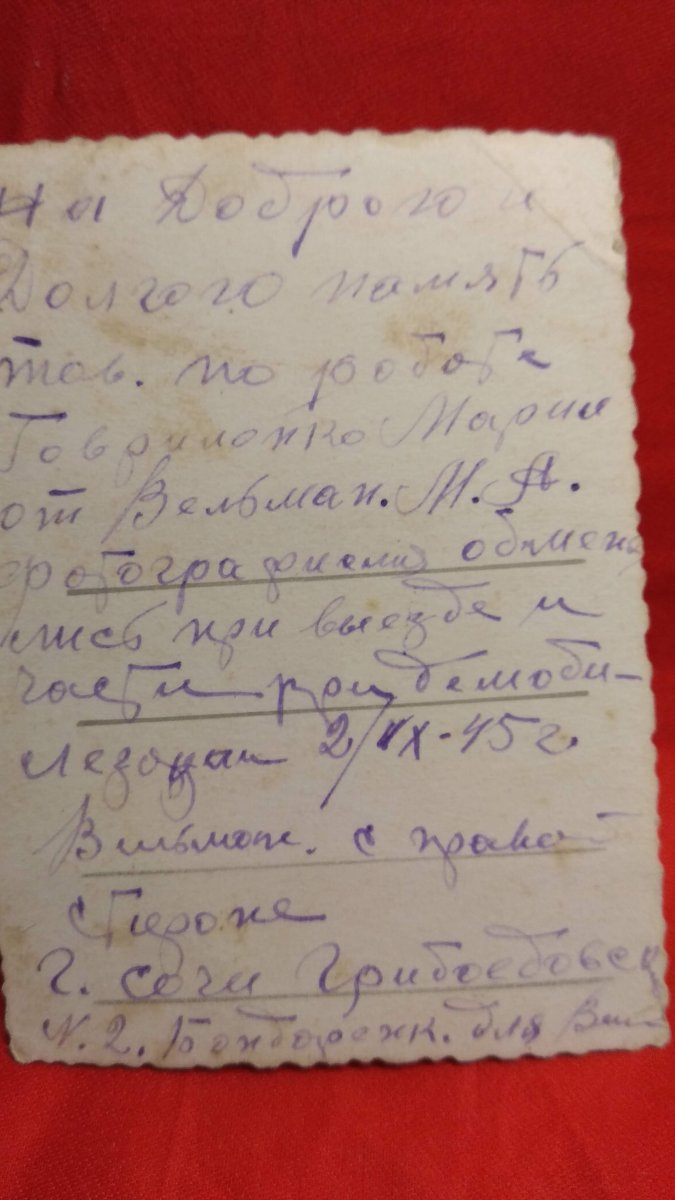 на Доброю и
Долгого память
тов. по работе
Гавриленко Марии
от Вельман. М. А.
фотографиями обмена
лись при выезде и
части при демоби-
лезации 2/IX-45 г.
Вельман. с правой
стироне
г. Сочи Грибоедовск
N. 2. для Вель